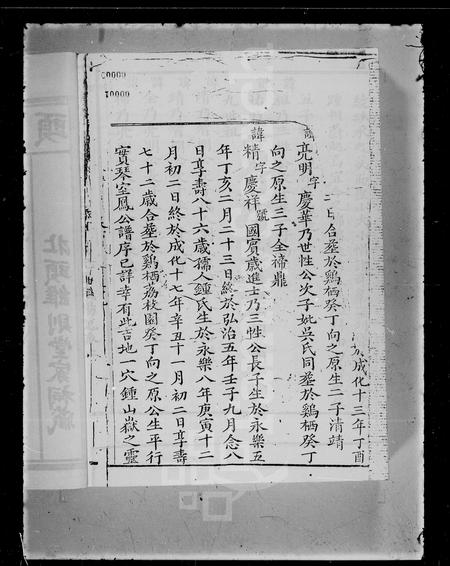 成化十三年丁酉
二日合塟於鷄栖癸丁向之原生二子清靖
諱亮明字慶華乃世性公次子妣吳氏同塟於鷄栖癸丁
向之原生三子全禘鼎
諱精字慶祥號國賓歲進士乃三性公長子生於永樂五
年丁亥二月二十三日終於弘治五年壬子九月念八
日享壽八十六歲孺人鍾氏生於永樂八年庚寅十二
月初二日終於成化十七年辛丑十一月初二日享壽
七十二歲合塟於鷄栖荔枝園癸丁向之原公生平行
實琴室鳳公譜序已詳幸有此吉地一穴鍾山嶽之靈
頭